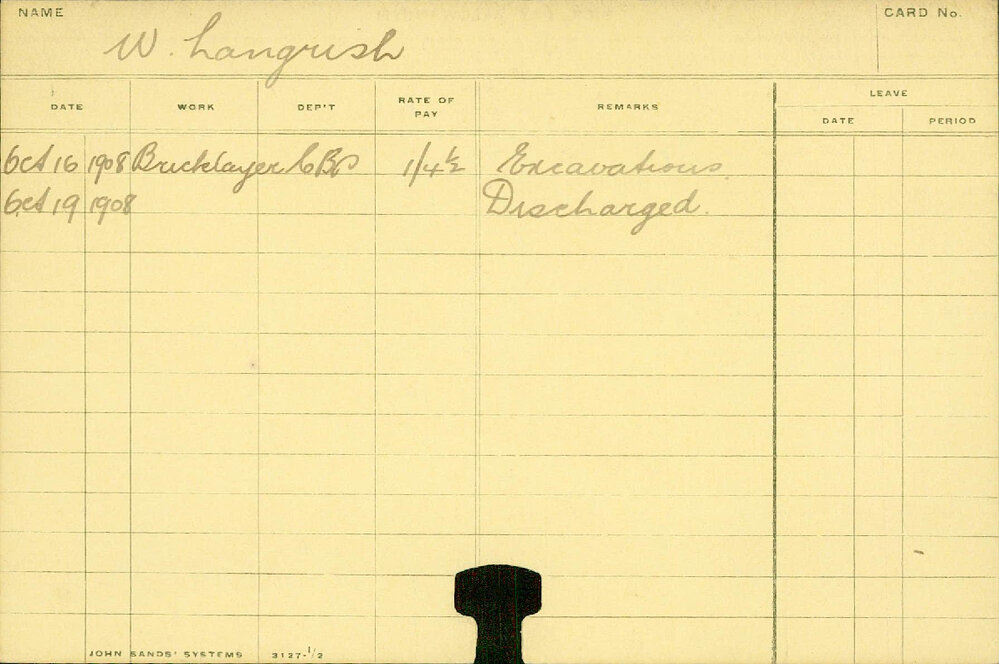 NAME
CARD No.
W. Langrish
DATE WORK DEP'T RATE OF PAY REMARKS LEAVE
DATE PERIOD
Oct 16 1908 Bricklayer CBP 1/4½ Excavations.
Oct 19 1908 Discharged.
JOHN SANDS' SYSTEMS 3127-1/2